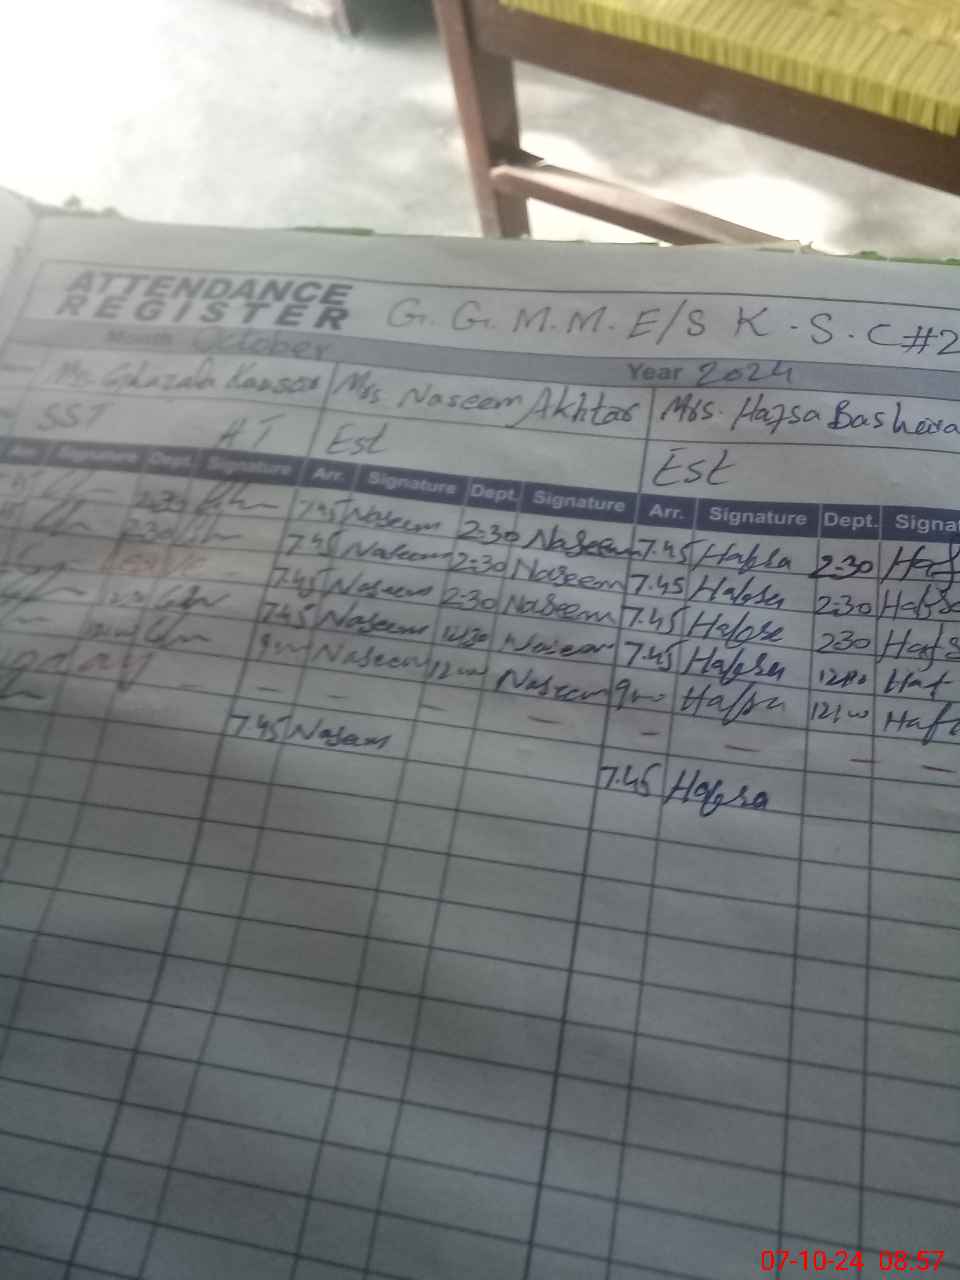 ATTENDANCE
REGISTER G. G. M. M. E/S K. S. C #2
Month October Year 2024
Ghazala Kausar Mrs Naseem Akhtar Mrs. Hafsa Basheera
SST HT Est Est
Signature Dept. Signature Arr. Signature Dept. Signature Arr. Signature Dept. Signa
2:30 7.45 Naseem 2:30 Naseem 7.45 Hafsa 2:30 Haf
2:30 7.45 Naseem 2:30 Naseem 7.45 Hafsa 2:30 Hafsa
Leave 7.45 Naseem 2:30 Naseem 7.45 Hafsa 2:30 Hafs
7.45 Naseem 12:30 Naseem 7.45 Hafsa Haf
9 Naseem 12 Naseem 9 Hafsa 12 Haf
- - - - - - - -
7.45 Naseem 7.45 Hafsa
07-10-24 08:57